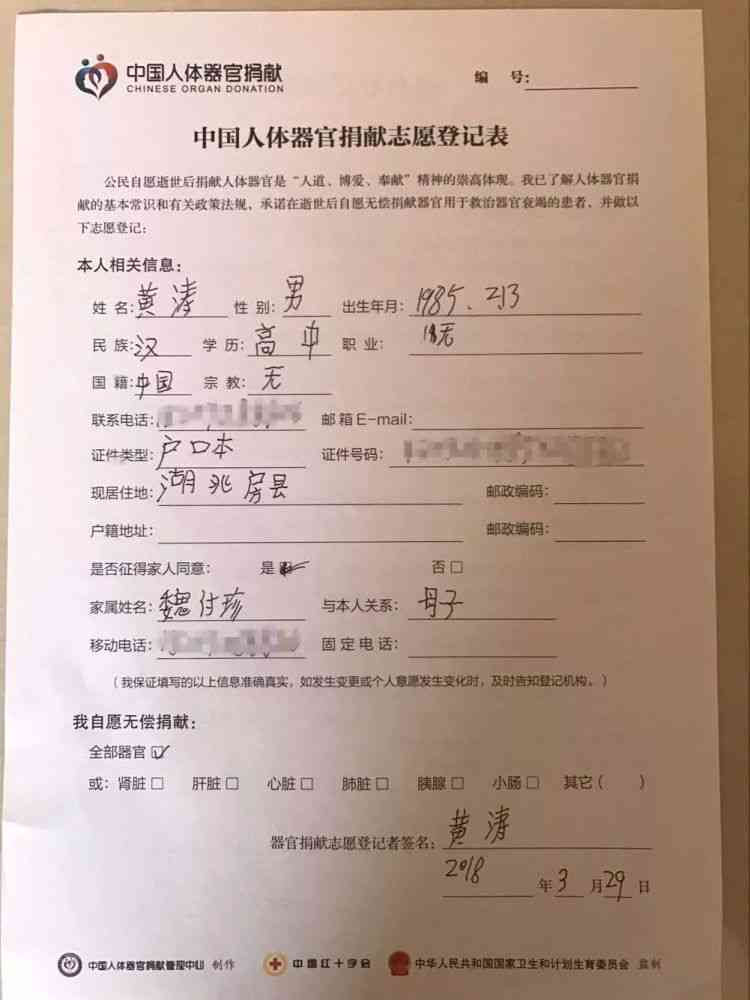 中国人体器官捐献
CHINESE ORGAN DONATION
编 号:
中国人体器官捐献志愿登记表
公民自愿逝世后捐献人体器官是“人道、博爱、奉献”精神的崇高体现。我已了解人体器官捐
献的基本常识和有关政策法规、承诺在逝世后自愿无偿捐献器官用于救治器官衰竭的患者、并做以
下志愿登记:
本人相关信息:
姓 名:黄涛 性 别:男 出生年月:1985.2.13
民 族:汉 学 历:高中 职 业: 无
国 籍:中国 宗教:无
联系电话: 邮箱E-mail:
证件类型:户口本 证件号码:
现居住地:湖北房县 邮政编码:
户籍地址: 邮政编码:
是否征得家人同意: 是 否□
家属姓名:魏付珍 与本人关系:母子
移动电话: 固定电话:
(我保证填写的以上信息准确真实,如发生变更或个人意愿发生变化时,及时告知登记机构。)
我自愿无偿捐献:
全部器官☑
或: 肾脏□ 肝脏□ 心脏□ 肺脏□ 胰腺□ 小肠□ 其它( )
器官捐献志愿登记者签名:黄涛
2018年3月29日
中国人体器官捐献管理中心 制作 中国红十字会 中华人民共和国国家卫生和计划生育委员会 监制